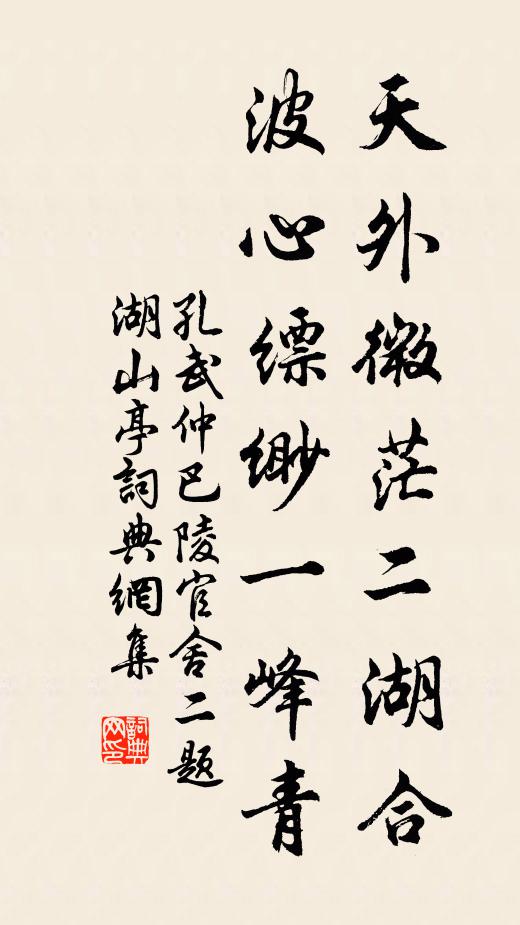 天外微茫二湖合
波心缥缈一峰青
孔武仲巴陵官舍二题
湖山亭詞典網集
詞典网印